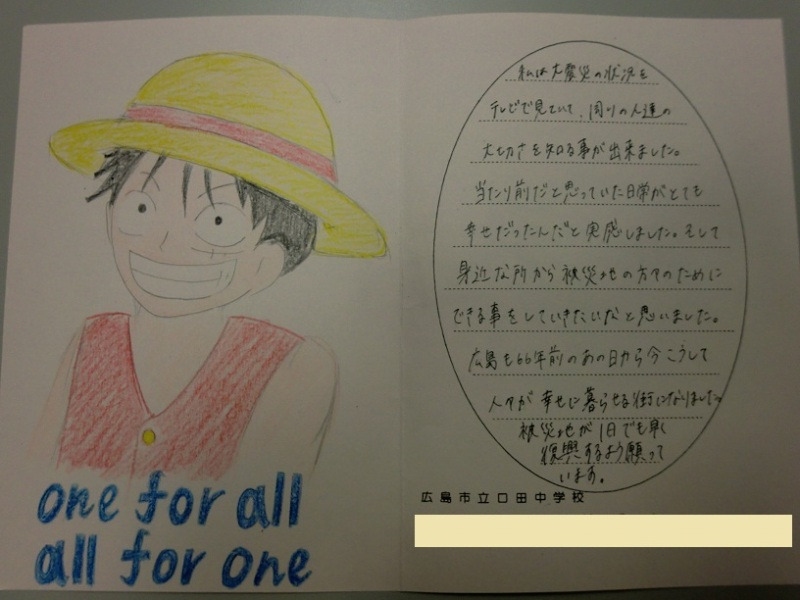 one for all
all for one
私は大震災の状況を
テレビで見ていて、周りの人達の
大切さを知る事が出来ました。
当たり前だと思っていた日常がとても
幸せだったんだと実感しました。そして
身近な所から被災地の方々のために
できる事をしていきたいなと思いました。
広島も66年前のあの日から今こうして
人々が幸せに暮らせる街になりました。
被災地が1日でも早く
復興するよう願って
います。
広島市立口田中学校